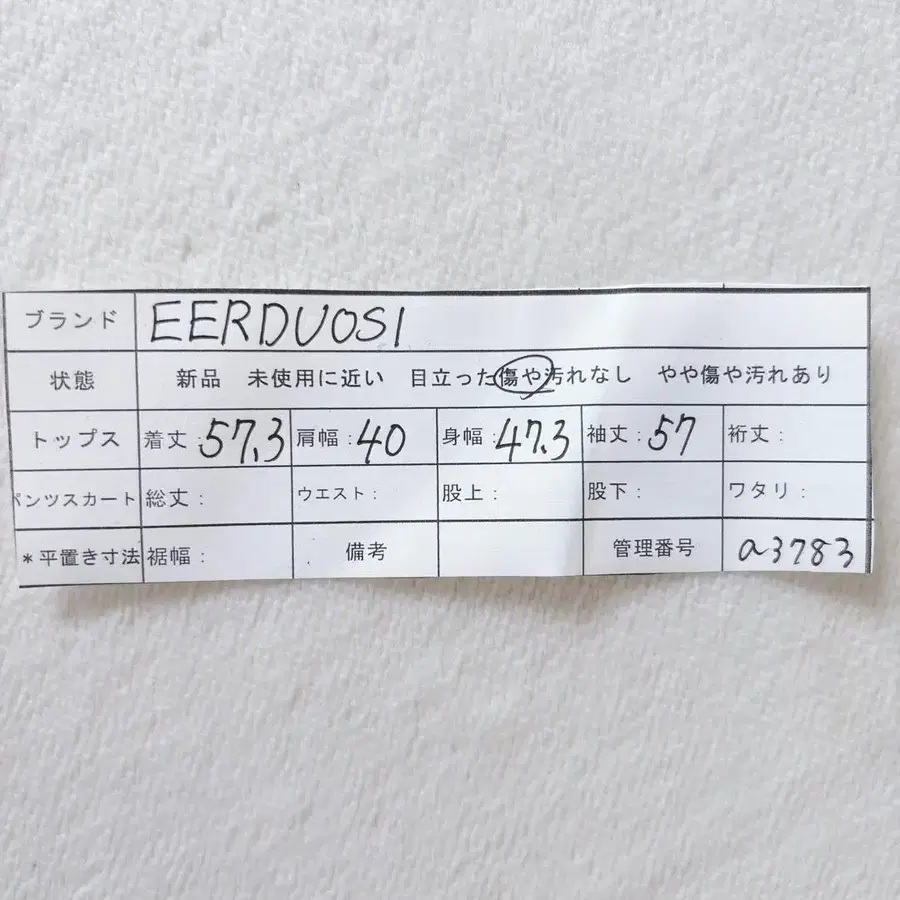 ブランド EERDUOSI
状態 新品 未使用に近い 目立った傷や汚れなし やや傷や汚れあり
トップス 着丈:57.3 肩幅:40 身幅:47.3 袖丈:57 裄丈:
パンツスカート 総丈: ウエスト: 股上: 股下: ワタリ:
*平置き寸法 裾幅: 備考 管理番号 a3783